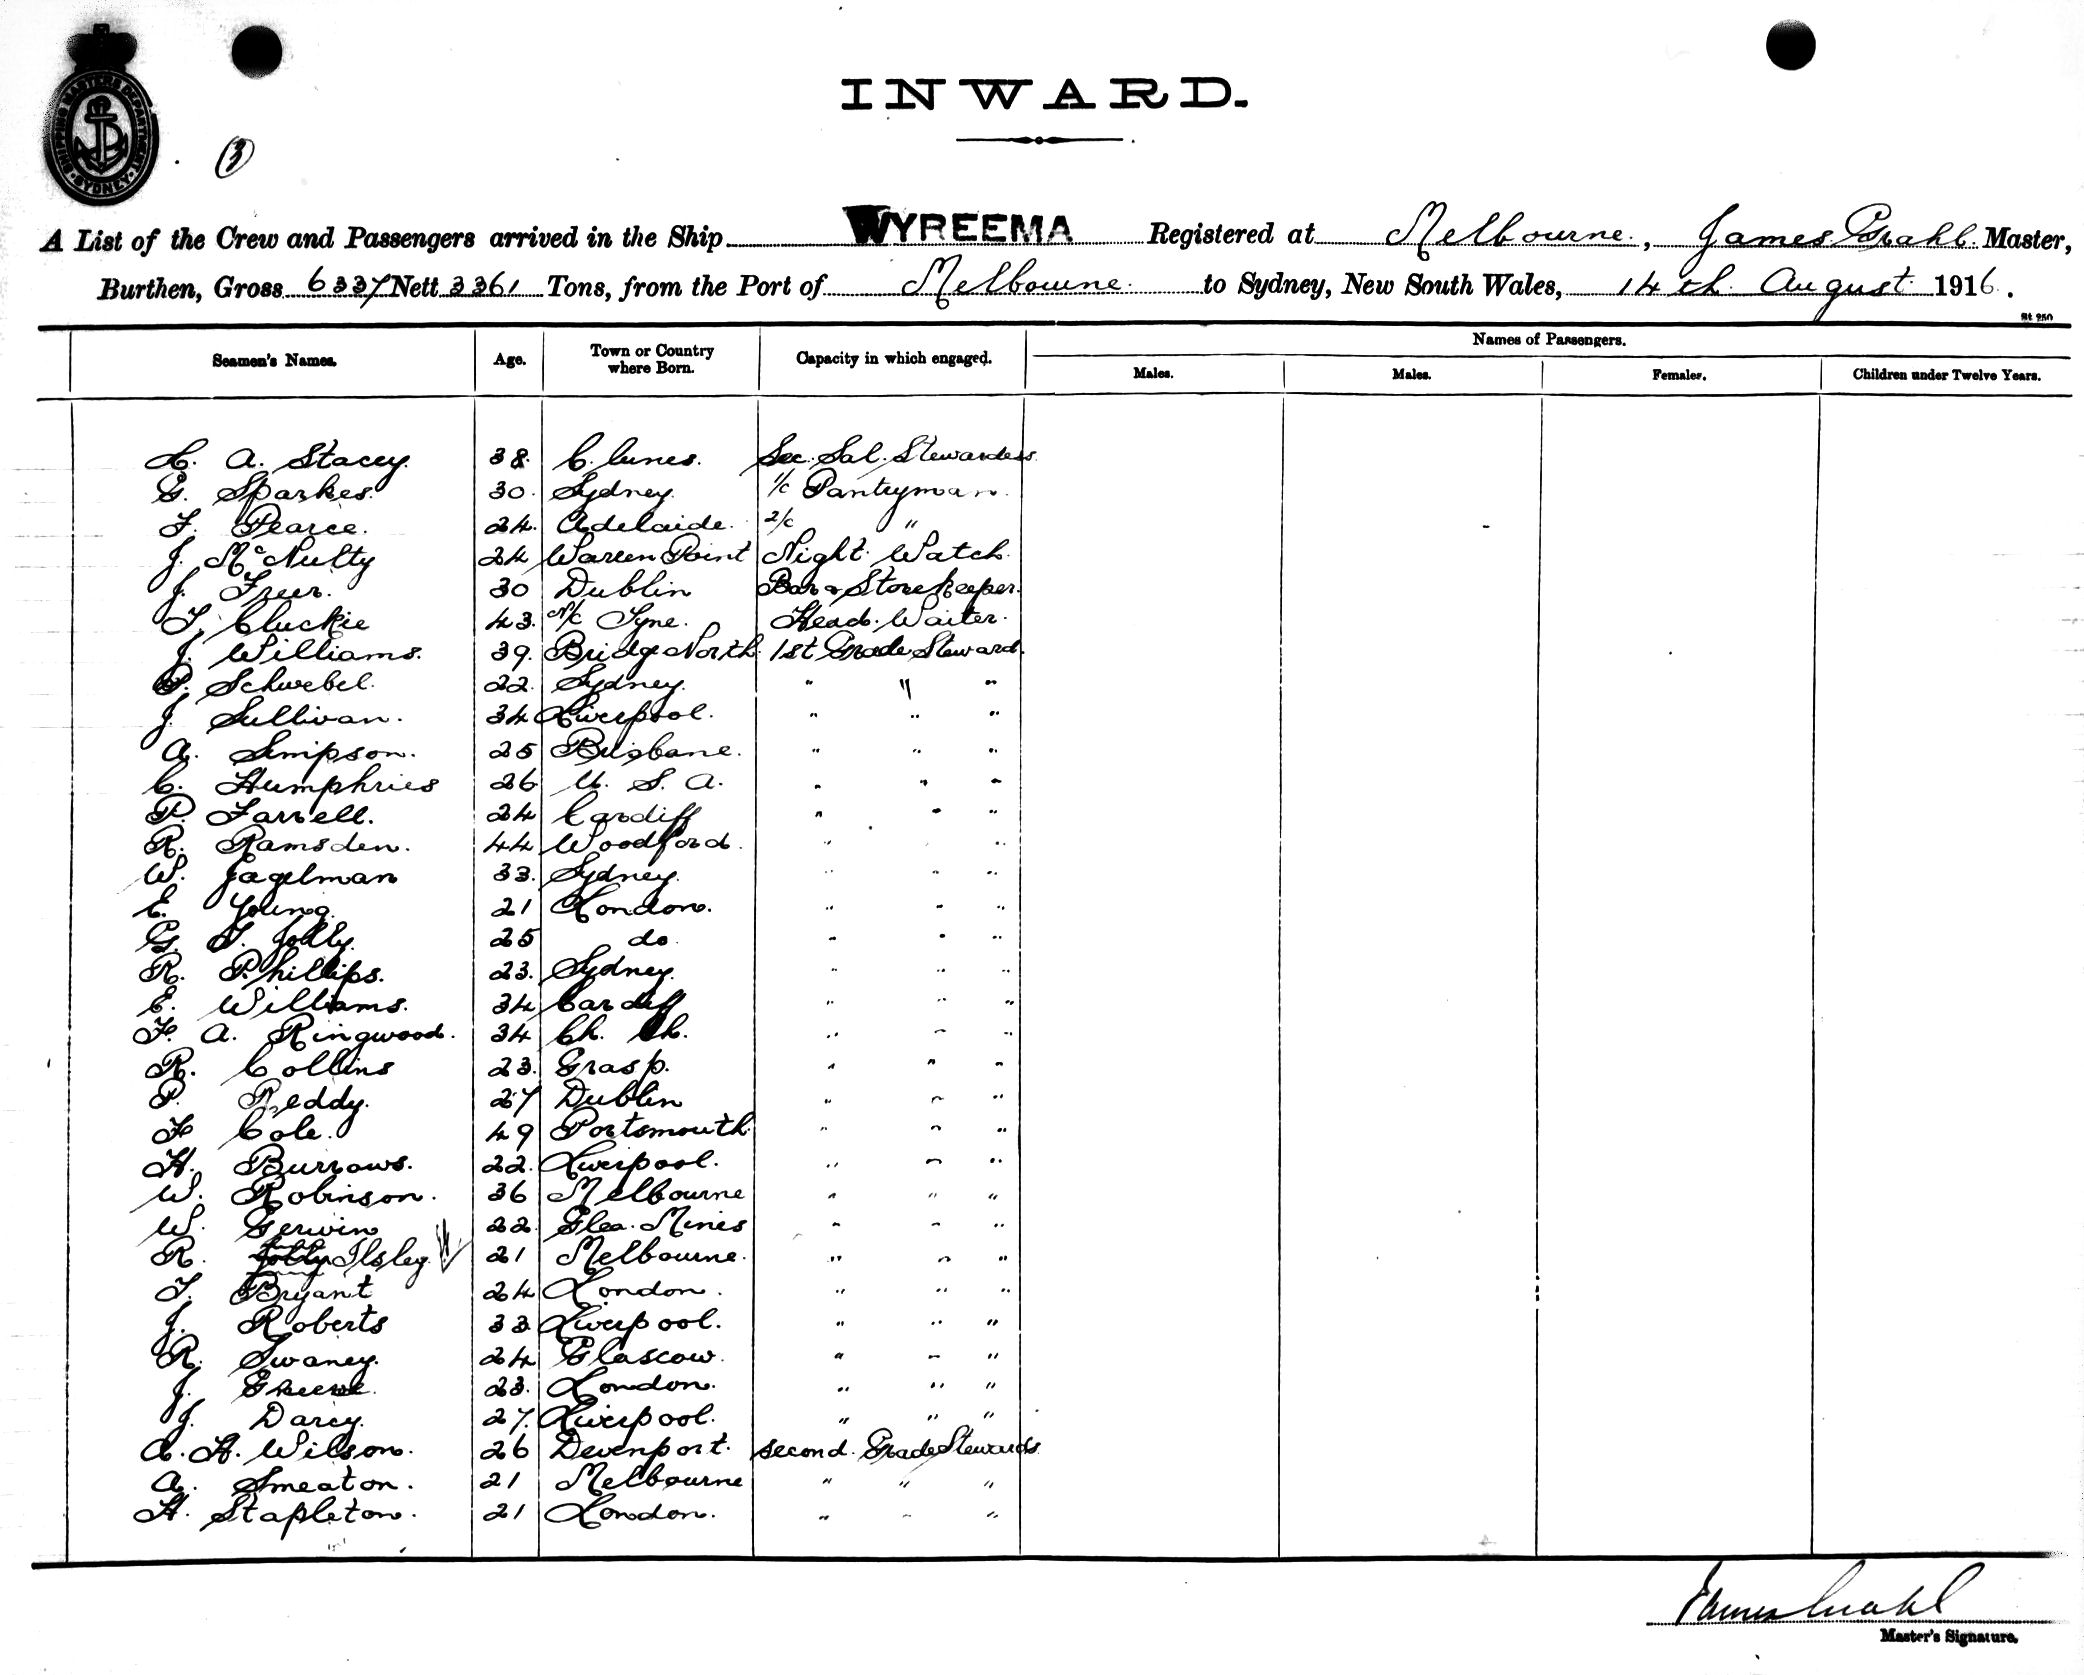 INWARD.
SHIPPING MASTERS DEPARTMENT SYDNEY
(3)
A List of the Crew and Passengers arrived in the Ship WYREEMA Registered at Melbourne, James Grahl Master,
Burthen, Gross 6337 Nett 3361 Tons, from the Port of Melbourne to Sydney, New South Wales, 14th August 1916.
St 250
Seamen's Names. Age. Town or Country where Born. Capacity in which engaged. Names of Passengers.
Males. Males. Females. Children under Twelve Years.
L. A. Stacey. 38. Clunes. Sec. Sal. Stewardess
G. Sparkes. 30. Sydney. 1/c Pantryman.
F. Pearce. 24. Adelaide. 2/c "
J. McNulty 24 Warren Point Night Watch.
J. Freer. 30 Dublin Bar & Storekeeper.
T. Cluckie 43. N/c Tyne. Head Waiter.
J. Williams. 39. Bridge North. 1st Grade Steward.
P. Schwebel. 22. Sydney. " " "
J. Sullivan. 34 Liverpool. " " "
A. Simpson. 25 Brisbane. " " "
C. Humphries 26 U. S. A. " " "
P. Farrell. 24 Cardiff " " "
R. Ramsden. 44 Woodford. " "
W. Jagelman 33. Sydney. " " "
E. Young. 21 London. " " "
G. T. Jolly. 25 do. " " "
R. Phillips. 23. Sydney. " " "
E. Williams. 34 Cardiff " " "
F. A. Ringwood. 34 Ch. Ch. " " "
R. Collins 23. Grasp. " " "
P. Reddy. 27 Dublin " " "
F. Cole. 49 Portsmouth. " " "
H. Burrows. 22. Liverpool. " " "
W. Robinson. 36 Melbourne " " "
W. Gerwin 22 Glea. Mines " " "
R. Jolly Ilsley. 21 Melbourne. " " "
T. Bryant 24 London. " " "
J. Roberts 33 Liverpool. " " "
R. Swaney. 24 Glascow. " " "
J. Greene. 23. London. " " "
J. Darcy. 27. Liverpool. " " "
A. H. Wilson. 26 Devenport. second Grade Stewards
A. Smeaton. 21 Melbourne " " "
H. Stapleton. 21 London. " " "
James Grahl
Master's Signature.